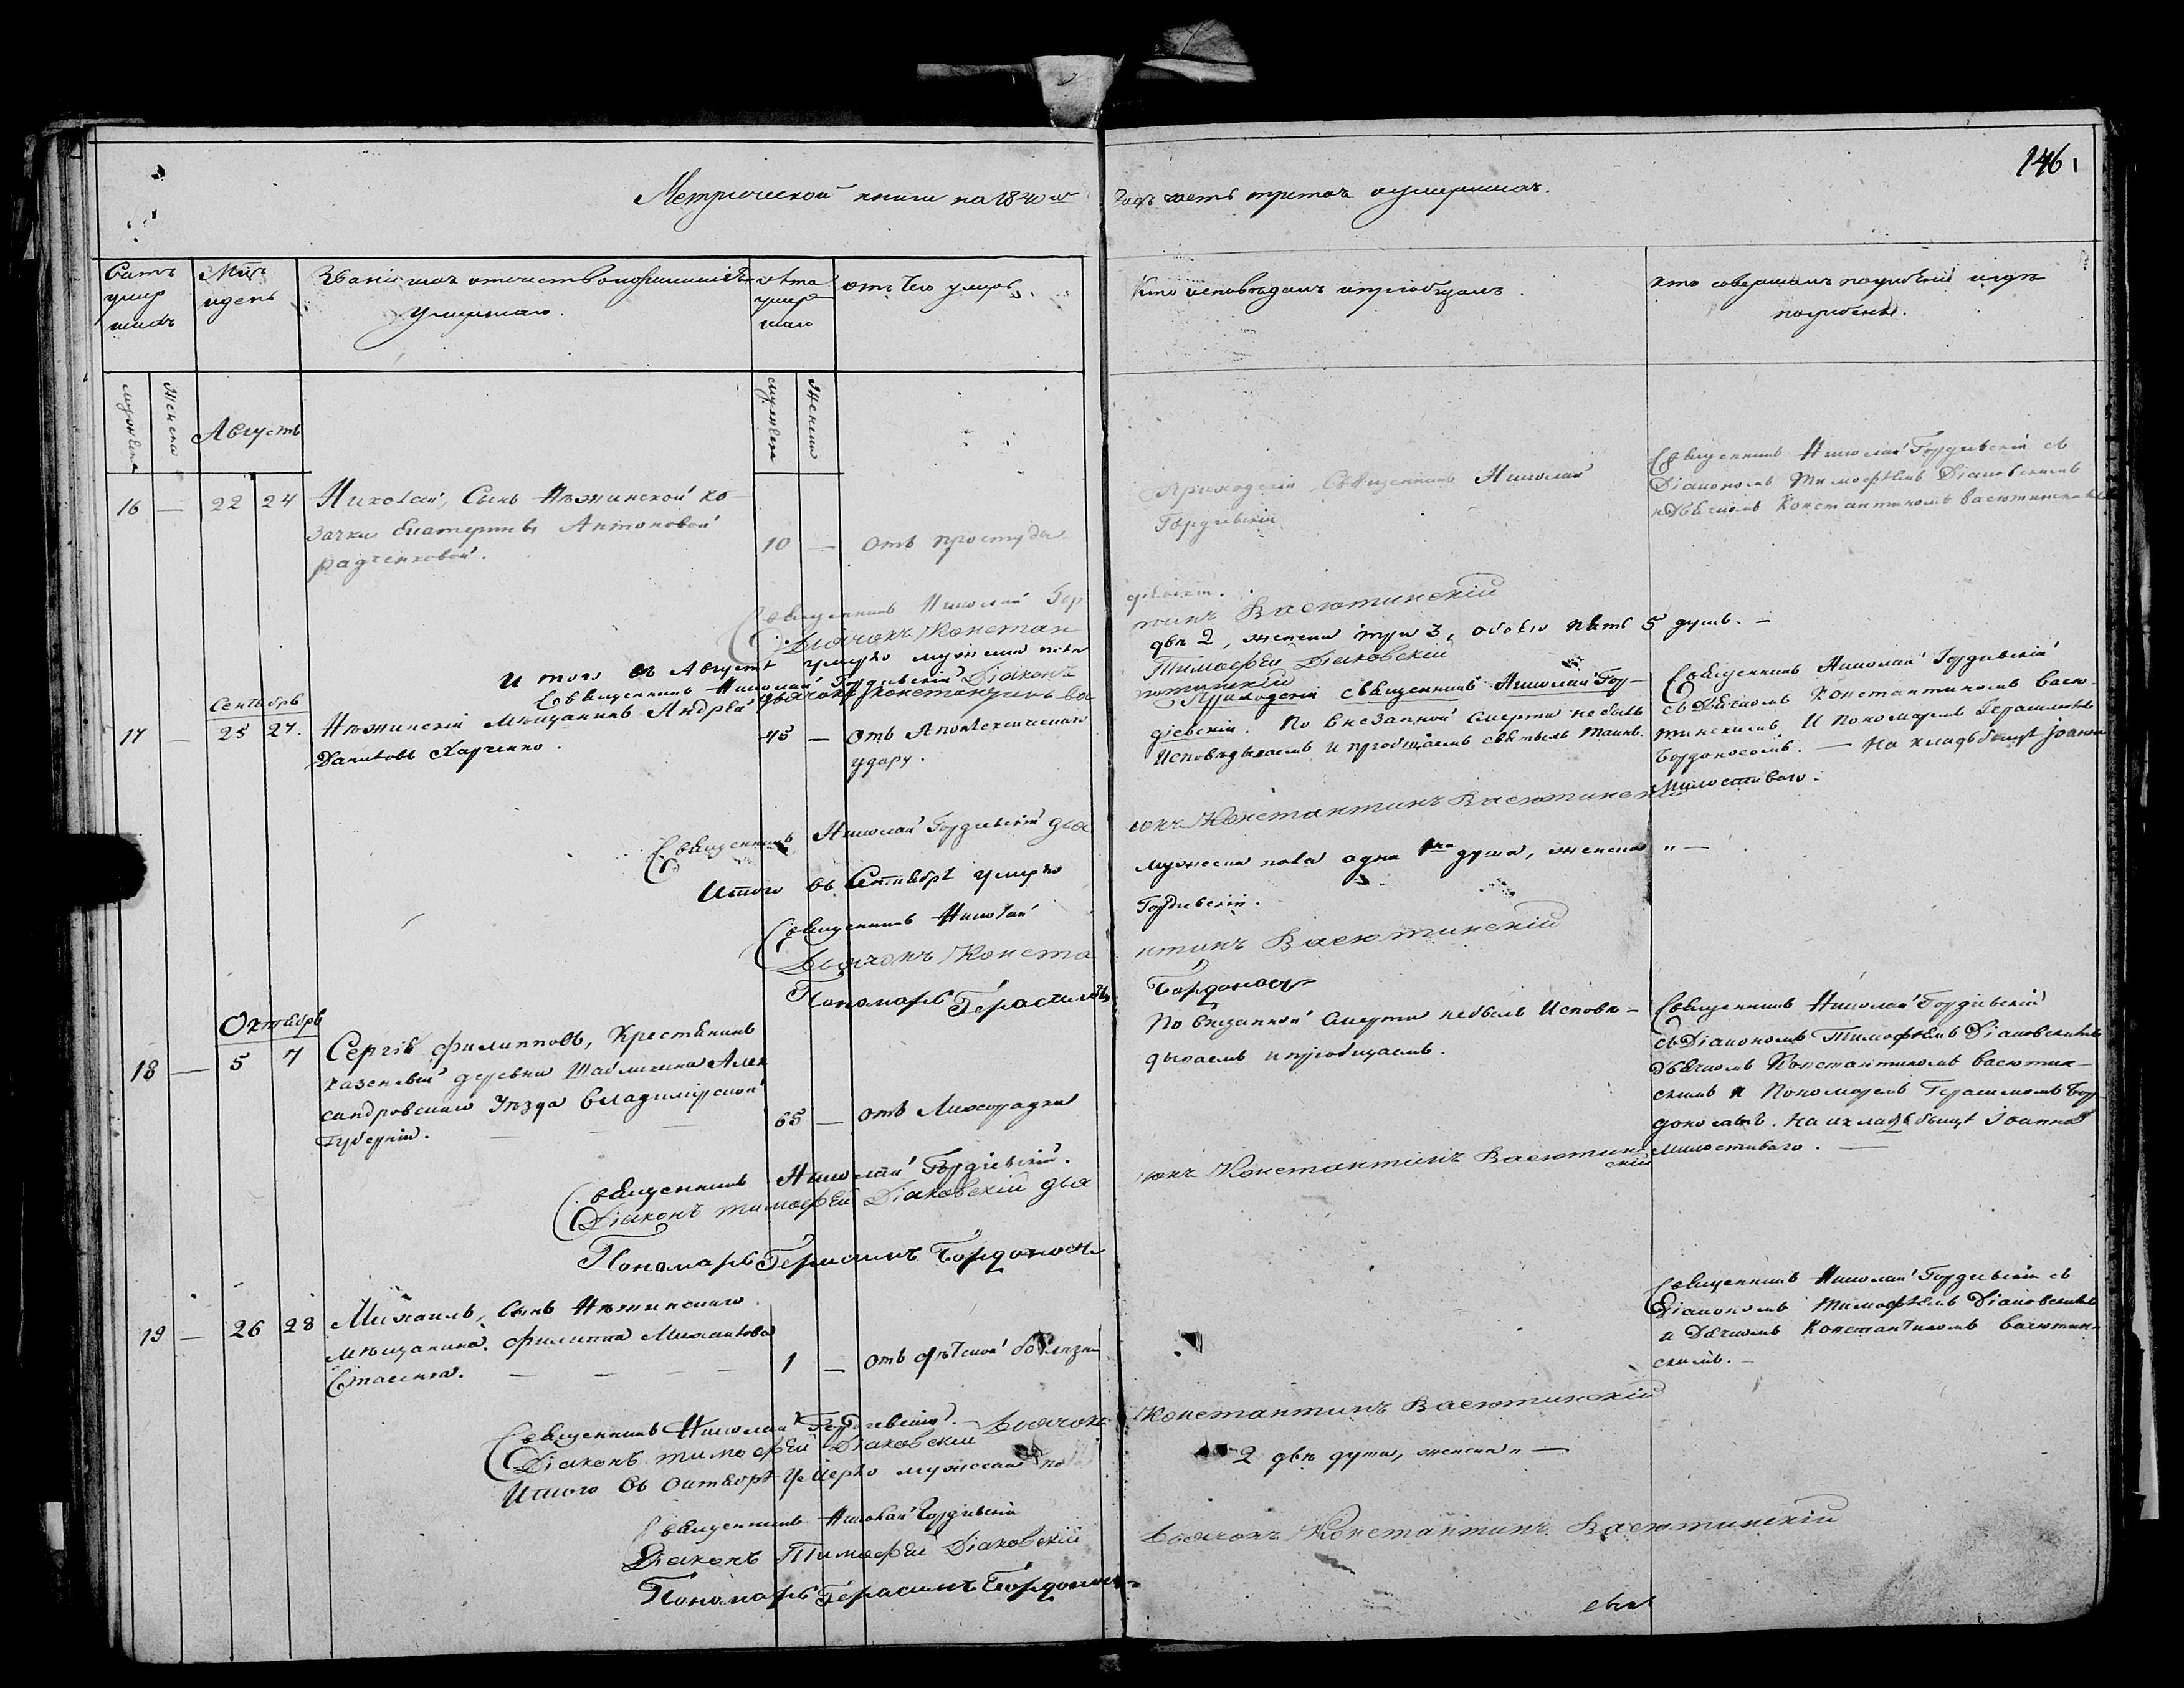 146
Метрической книги на 1840й годъ часть третая оумершихъ.
Счетъ умершихъ
Мцъ и день
Званіе имя отечество и фамилія умершаго.
лѣта умершаго
отъ чего умеръ.
Кто исповѣдалъ и приобщалъ.
кто совершалъ погребеніе и гдѣ погребены.
мужеска
женска
Августъ
мужеска
женска
16 — 22 24
Николай, Сынъ Нѣжинской ко-
зачки Екатерины Антоновой
радченковой.
10 — отъ простуды
Приходскій Священникъ Николай
Гордіевскій
Священникъ Николай Гордіевскій съ
Діакономъ Тимофѣемъ Діаковскимъ
и Дьячкомъ Константиномъ васютинскимъ
Священникъ Николай Гордіевскій.
Дьячокъ Константинъ Васютинскій
Итого въ Августѣ умерло мужеска пола двѣ 2, женска три 3, обоего пять 5 душъ. —
Священникъ Николай Гордіевскій Діаконъ Тимофей Діаковскій
дьячокъ Константинъ васютинскій
Сентябрь
17 — 25 27.
Нѣжинскій Мѣщанинъ Андрей
Даниловъ Харченко.
45 — отъ Апоплексическаго
удару.
Приходскій священникъ Николай Гор-
діевскій. По внезапной смерти не былъ
Исповѣдываемъ и приобщаемъ святыхъ таинъ.
Священникъ Николай Гордіевскій
съ Дьячкомъ Константиномъ васю-
тинскимъ И пономаремъ Герасимомъ
Бордоносомъ. — На кладбищѣ Іоанна
милостиваго.
Священникъ Николай Гордіевскій дьячокъ Константинъ Васютинскій
Итого въ Сентябрѣ умерло мужеска пола одна 1на душа, женска „ —
Священникъ Николай Гордіевскій.
Дьячокъ Константинъ Васютинскій
Пономарь Герасимъ Бордоносъ
Октябрь
18 — 5 7
Сергій филипповъ, Крестьянинъ
казенный деревни Алек
сандровскаго Уѣзда владимірской
Губерніи. — — —
65 — отъ Лихорадки
По внезапной смерти не былъ Исповѣ-
дываемъ и приобщаемъ.
Священникъ Николай Гордіевскій
съ Діакономъ Тимофѣемъ Діаковскимъ
Дьячкомъ Константиномъ васютин-
скимъ и Пономаремъ Герасимомъ Бор
доносомъ. На кладбищѣ Іоанна
милостиваго. —
Священникъ Николай Гордіевскій.
Діаконъ тимофей Діаковскій дьячокъ Константинъ Васютинскій
Пономарь Герасимъ Бордоносъ
19 — 26 28
Михаилъ, Сынъ Нѣжинскаго
мѣщанина филиппа Михайлова
— — —
1 — отъ дѣтской болѣзни
Священникъ Николай Гордіевскій съ
Діакономъ Тимофѣемъ Діаковскимъ
и Дячкомъ Константиномъ васютин-
скимъ. —
Священникъ Николай Гордіевскій. Дьячокъ Константинъ Васютинскій
Діаконъ тимофей Діаковскій
Итого въ Октябрѣ умерло мужеска 2 двѣ душы, женска „ —
Священникъ Николай Гордіевскій
Діаконъ Тимофей Діаковскій Дьячокъ Константинъ Васютинскій
Пономарь Герасимъ Бордоносъ